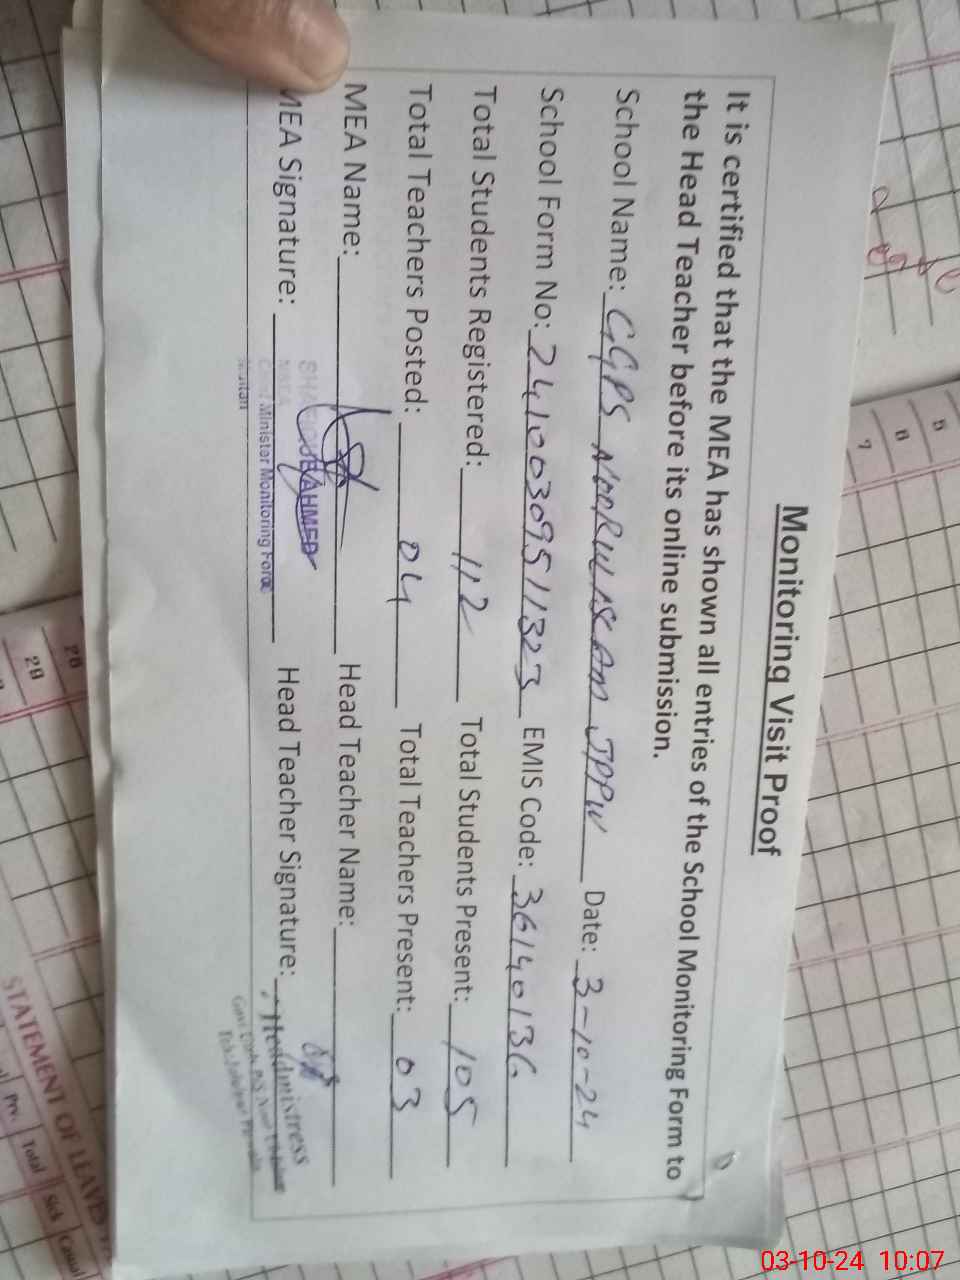 Monitoring Visit Proof
It is certified that the MEA has shown all entries of the School Monitoring Form to
the Head Teacher before its online submission.
School Name: GGPS NOORUL ISLAM JPPW Date: 3-10-24
School Form No: 24100309511323 EMIS Code: 36140136
Total Students Registered: 112 Total Students Present: 105
Total Teachers Posted: 04 Total Teachers Present: 03
MEA Name: Head Teacher Name:
MEA Signature: Head Teacher Signature:
AHMED
Chief Minister Monitoring Force
Multan
Headmistress
STATEMENT OF LEAVE
Prv. Total Sick Casual
5
6
7
28
29
03-10-24 10:07